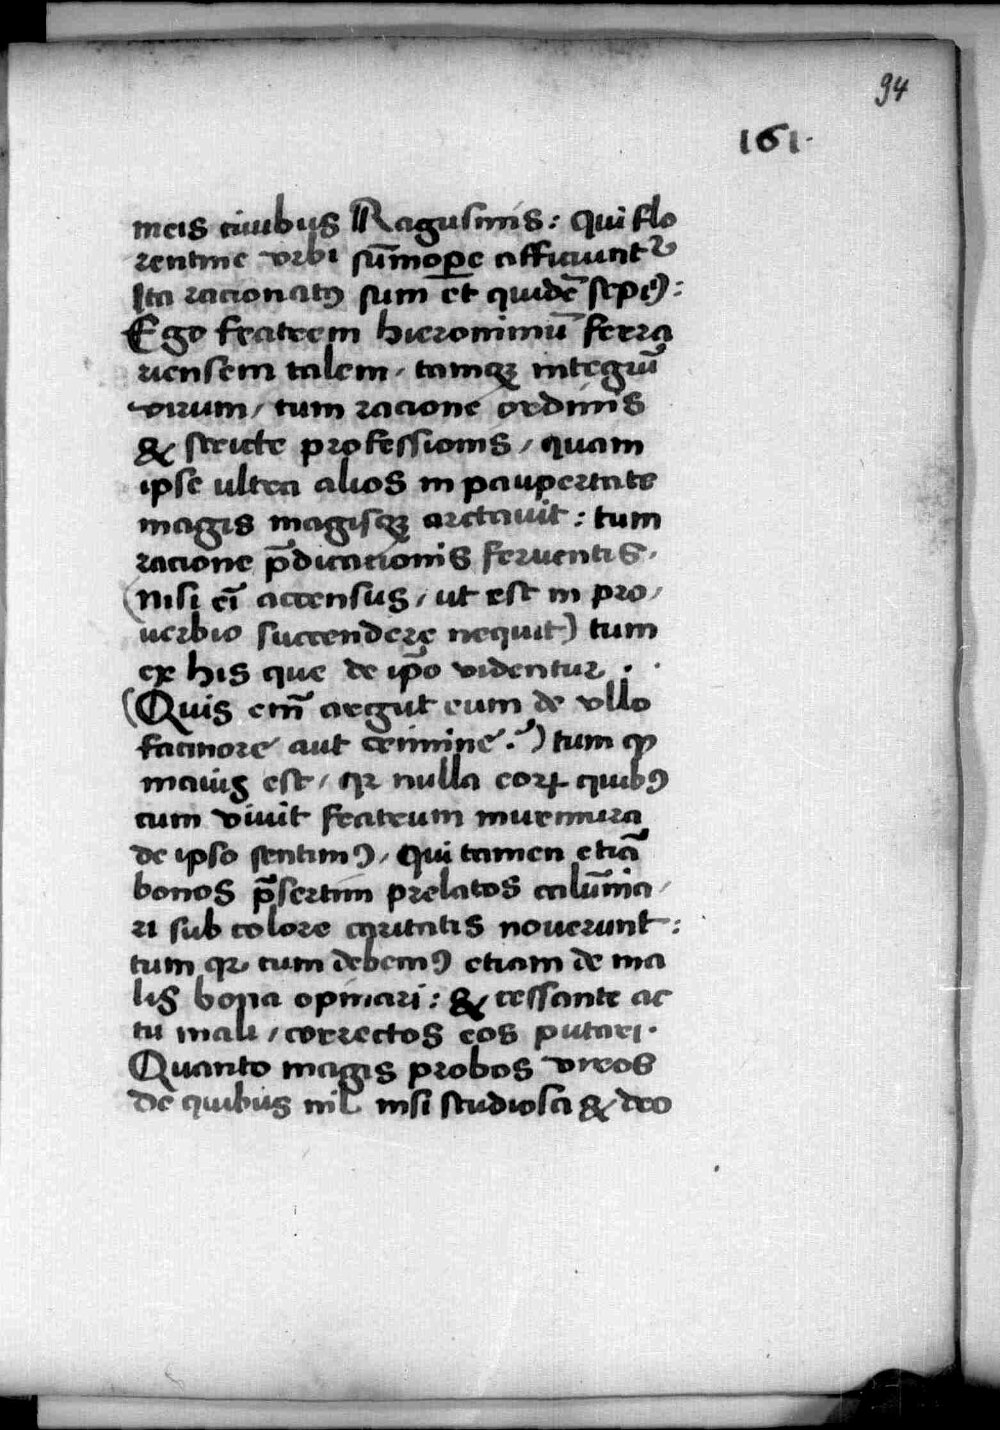 94
161.
meis ciuibus Ragusinis: Qui flo
rentine vrbi sūmop̲e afficiunt᷑
Ita racionatꝰ sum et quidē sepiꝰ:
Ego fratrem hieronimū ferra
riensem talem / tamqꝫ integrū
virum / tum racione ordinis
& stricte professionis / quam
ipse ultra alios in paupertate
magis magisqꝫ arctauit: tum
racione p̄dicationis feruentis.
(nisi ei̅ accensus / ut est in pro/
uerbio succendere nequit) tum
ex his que de ip̄o videntur .
(Quis em̄ arguit eum de vllo
facinore aut crimine.?) tum ꝙ
maius est / qꝛ nulla eoꝝ quibꝰ
cum viuit fratrum murmura
de ipso sentimꝰ / qui tamen etiā
bonos p̄sertim prelatos calūnia/
ri sub colore caritatis nouerunt:
tum qꝛ cum debemꝰ etiam de ma
lis bona opinari: & cessante ac
tu mali / correctos eos putari.
Quanto magis probos viros
de quibus nil nisi studiosa & deo